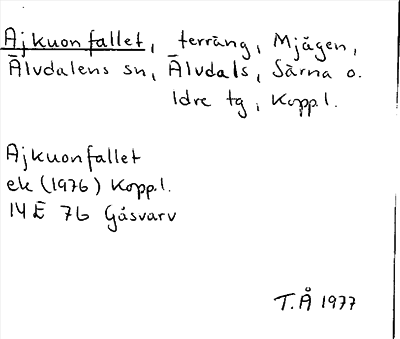 Ajkuonfallet, terräng, Mjågen,
Älvdalens sn, Älvdals, Särna o.
Idre tg, Koppl.
Ajkuonfallet
ek (1976) Koppl.
14 E 7b Gåsvarv
T.Å 1977